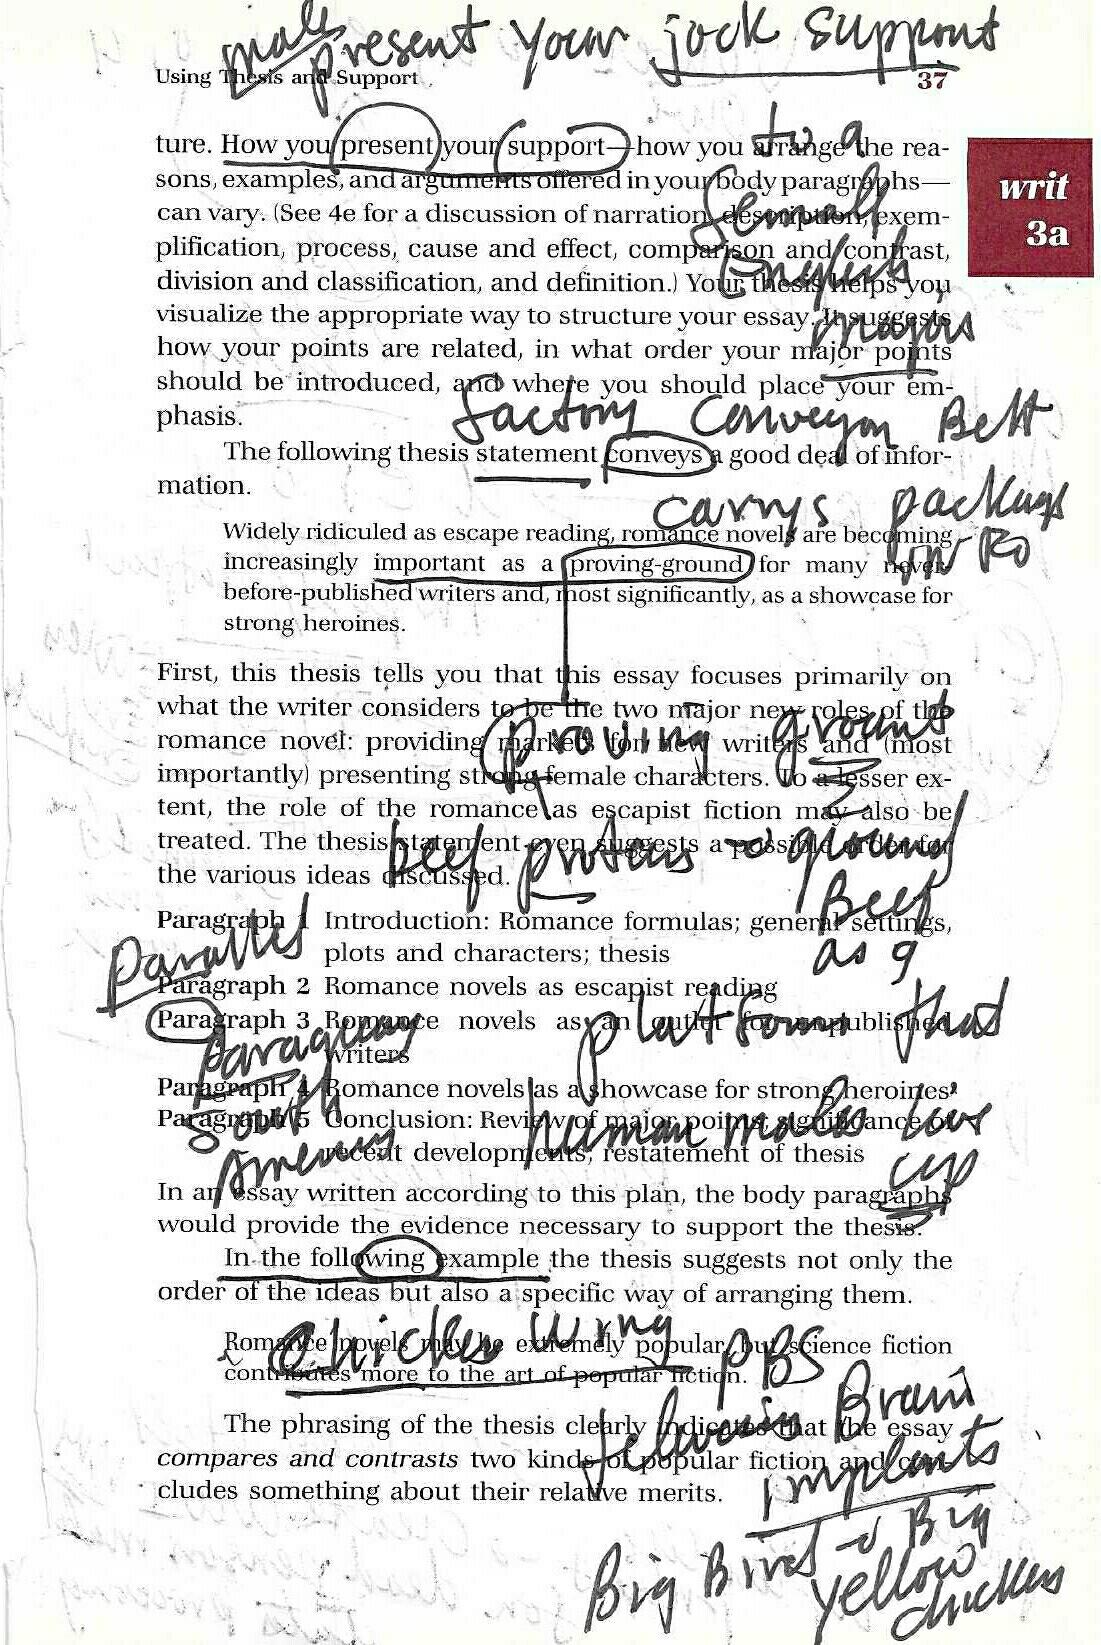 male
present your jock support
Using Thesis and Support
37
to a
female
English
majors
writ
3a
ture. How you present your support—how you arrange the rea-
sons, examples, and arguments offered in your body paragraphs—
can vary. (See 4e for a discussion of narration, description, exem-
plification, process, cause and effect, comparison and contrast,
division and classification, and definition.) Your thesis helps you
visualize the appropriate way to structure your essay. It suggests
how your points are related, in what order your major points
should be introduced, and where you should place your em-
phasis.
factory conveyor Belt
The following thesis statement conveys a good deal of infor-
mation.
carrys
Widely ridiculed as escape reading, romance novels are becoming
increasingly important as a proving-ground for many never-
before-published writers and, most significantly, as a showcase for
strong heroines.
First, this thesis tells you that this essay focuses primarily on
what the writer considers to be the two major new roles of the
romance novel: providing markets for new writers and (most
importantly) presenting strong female characters. To a lesser ex-
tent, the role of the romance as escapist fiction may also be
treated. The thesis statement even suggests a possible order for
the various ideas discussed.
proving ground
beef protein ground
Beef
as a
platform that
human males love
Paragraph 1 Introduction: Romance formulas; general settings,
plots and characters; thesis
Paragraph 2 Romance novels as escapist reading
Paragraph 3 Romance novels as an outlet for unpublished
writers
Paragraph 4 Romance novels as a showcase for strong heroines
Paragraph 5 Conclusion: Review of major points; significance of
recent developments; restatement of thesis
Paraguay
South
America
In an essay written according to this plan, the body paragraphs
would provide the evidence necessary to support the thesis.
In the following example the thesis suggests not only the
order of the ideas but also a specific way of arranging them.
Romance novels may be extremely popular, but science fiction
contributes more to the art of popular fiction.
wing PBS
The phrasing of the thesis clearly indicates that the essay
compares and contrasts two kinds of popular fiction and con-
cludes something about their relative merits.
Brain
implants
Big Bird Big
yellow
chicken